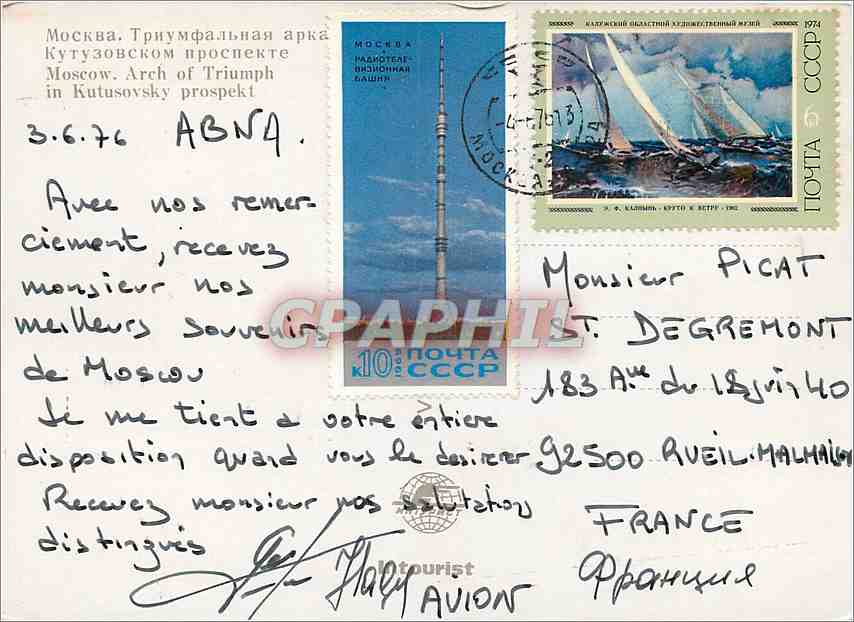 Москва. Триумфальная арка
Кутузовском проспекте
Moscow. Arch of Triumph
in Kutusovsky prospekt
3.6.76 ABNA.
Avec nos remer-
ciement, recevez
monsieur nos
meilleurs souvenirs
de Moscou
Je me tient a votre entiere
disposition quand vous le desirerer
Recevez monsieur nos salutation
distingués
Italy
AVION
МОСКВА
РАДИОТЕЛЕ-
ВИЗИОННАЯ
БАШНЯ
К10 1969 ПОЧТА
СССР
КАЛУЖСКИЙ ОБЛАСТНОЙ ХУДОЖЕСТВЕННЫЙ МУЗЕЙ 1974
ПОЧТА 6 СССР
Э. Ф. КАЛНЫНЬ - КРУТО К ВЕТРУ -
МОСКВА
Monsieur PICAT
ST. DEGREMONT
183 Ave du 18 juin 40
92500 RUEIL-MALMAISON
FRANCE
Франция
CPAPHIL
ИНТУРИСТ
Intourist